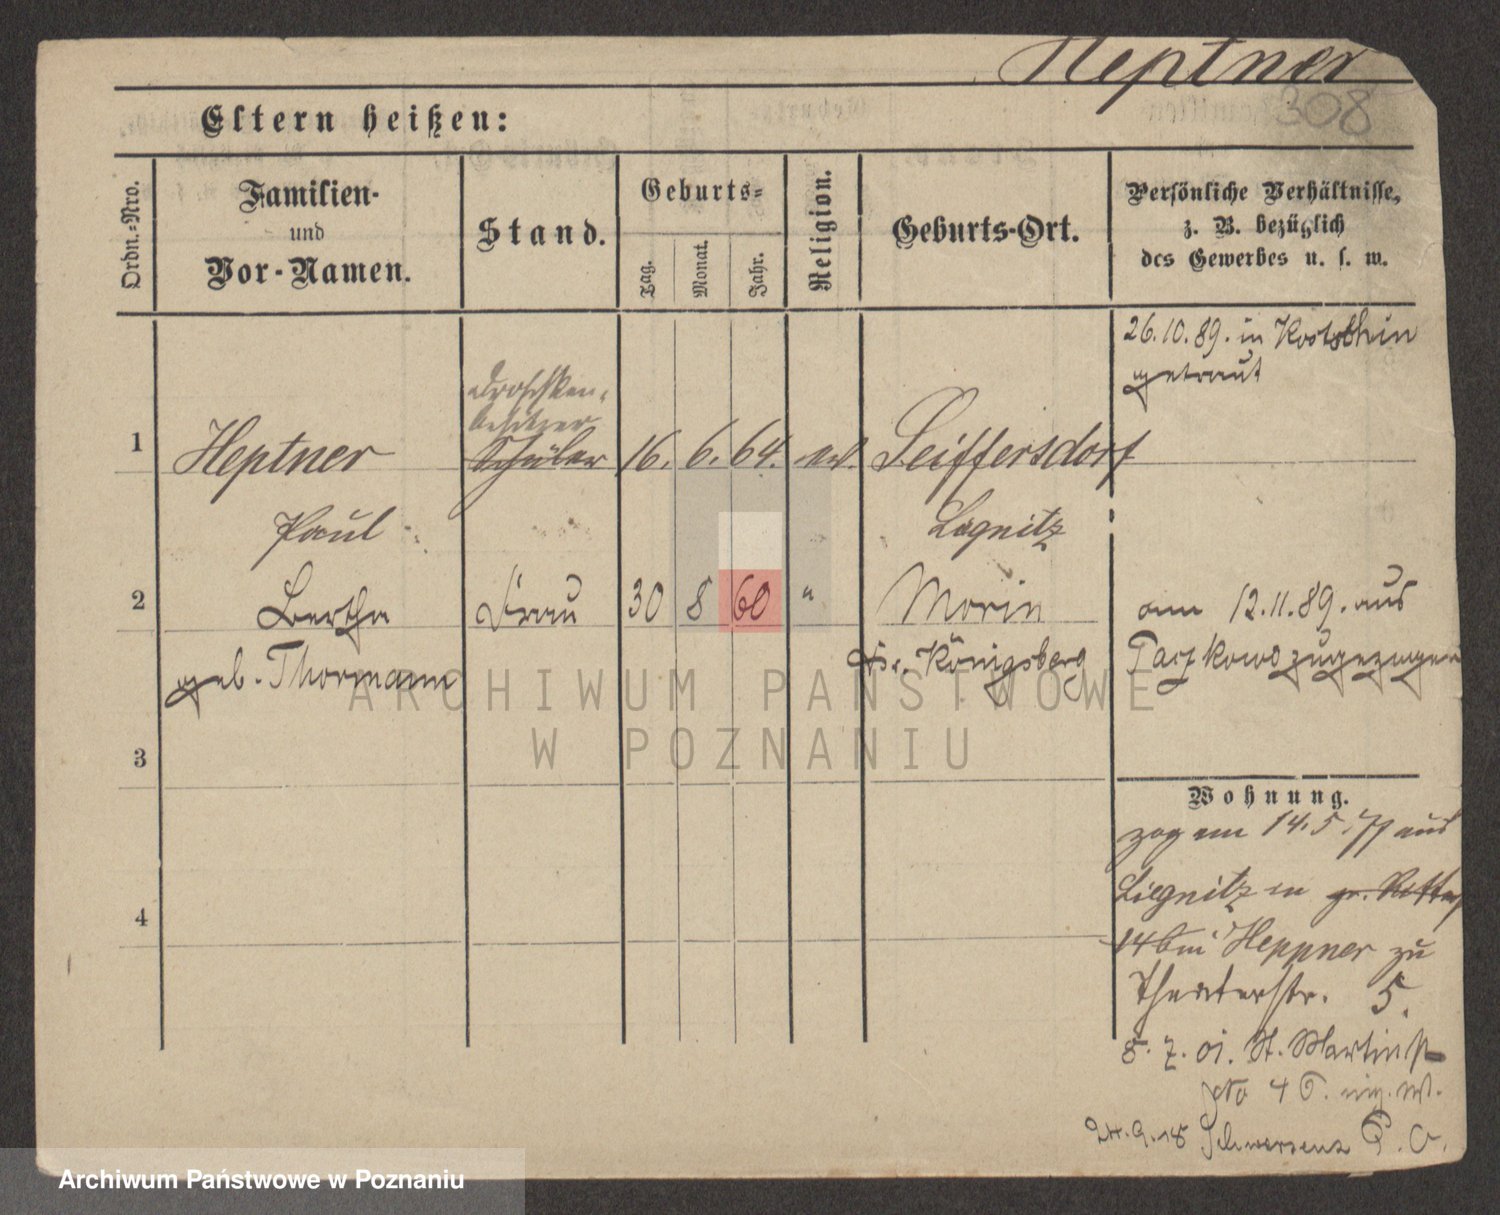 Heptner
308
Eltern heißen:
Ordn.-Nro.
Familien-
und
Vor-Namen.
Stand.
Geburts-
Tag.
Monat.
Jahr.
Religion.
Geburts-Ort.
Persönliche Verhältnisse,
z. B. bezüglich
des Gewerbes u. s. w.
26.10.89. in Kostschin
getraut
Droschken-
besitzer
1 Heptner Schüler 16. 6. 64. ev. Seiffersdorf
Paul Liegnitz
2 Bertha Frau 30 8 60 " Morin am 12.11.89. aus
geb. Thormann Kr. Königsberg Paczkowo zugezogen
ARCHIWUM PAŃSTWOWE
W POZNANIU
3
Wohnung.
zog am 14.5.77 aus
Liegnitz in gr. Ritter
4
14 bei Heppner zu
Theaterstr. 5.
8. 7. 01. St. Martinst
No 46.
24.9.18 Schwersenz P. O.
Archiwum Państwowe w Poznaniu